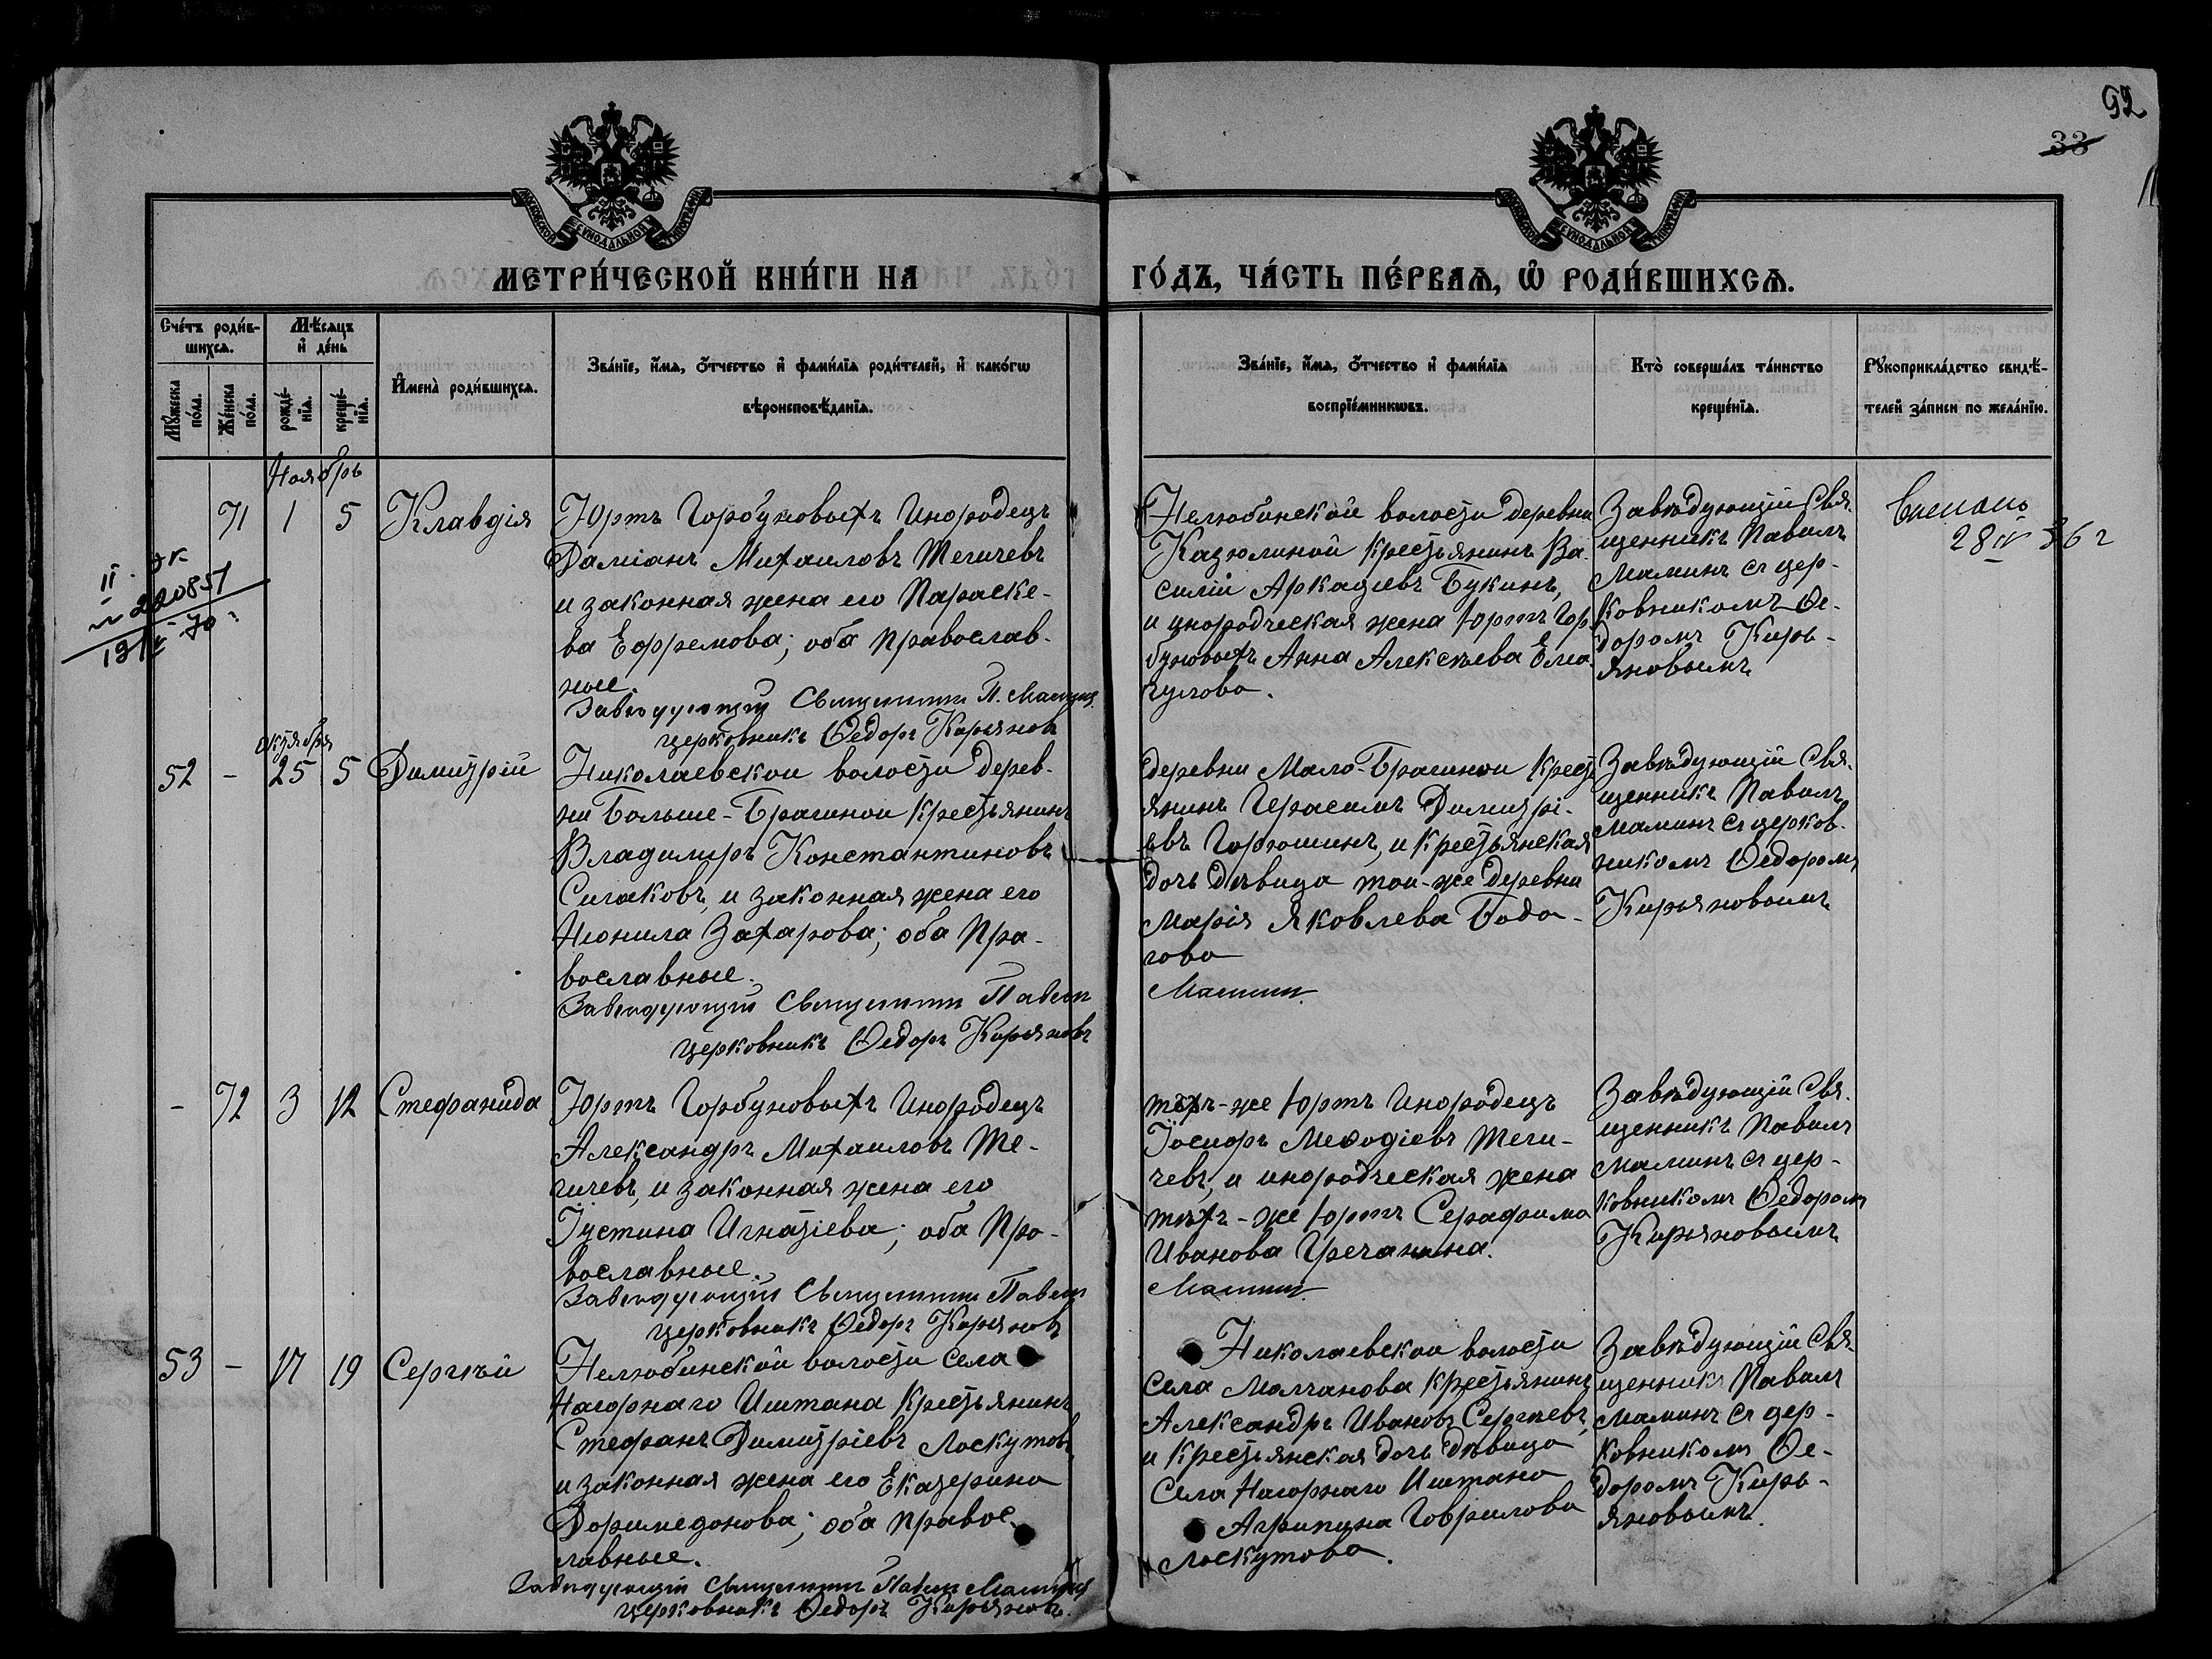 92
33
МОСКОВСКОЙ СѴНОДАЛЬНОЙ ТИПОГРАФІИ
МОСКОВСКОЙ СѴНОДАЛЬНОЙ ТИПОГРАФІИ
МЕТРИ́ЧЕСКОЙ КНИ́ГИ НА
ГО́ДЪ, ЧА́СТЬ ПЕ́РВАѦ, Ѽ РОДИ́ВШИХСѦ.
Сче́тъ роди́в-
шихсѧ.
Мѣ́сѧцъ
и҆ де́нь
Мꙋ́жеска
по́ла.
Же́нска
по́ла.
рожде́-
нїѧ.
креще́-
нїѧ.
И҆мена̀ роди́вшихсѧ.
Зва́нїе, и҆́мѧ, ѻ҆́тчество и҆ фами́лїѧ роди́телей, и҆ како́гѡ
вѣроисповѣ́данїѧ.
Зва́нїе, и҆́мѧ, ѻ҆́тчество и҆ фами́лїѧ
воспрїе́мникѡвъ.
Кто̀ соверша́лъ та́инство
креще́нїѧ.
Рꙋкоприкла́дство свидѣ́-
телей за́писи по жела́нїю.
Ноябрь
71 1 5 Клавдія
Юртъ Горбуновыхъ Инородецъ
Даміанъ Михаиловъ Тегичевъ
и законная жена его Параске-
ва Ефремова; оба православ-
ные.
Завѣдующій Священникъ П. Маминъ
церковникъ Ѳедоръ Кирьяновъ
Нелюбинской волости деревни
Казюлиной крестьянинъ Ва-
силій Аркадіевъ Букинъ,
и инородческая жена юртъ Гор
буновыхъ Анна Алексѣева
Завѣдующій Свя-
щенникъ Павелъ
Маминъ съ цер-
ковникомъ Ѳе-
доромъ Кирь-
яновымъ
28 IV 36 г
II
220851
70
октября
52 - 25 5 Димитрій
Николаевской волости дерев-
ни Больше-Брагиной крестьянинъ
Владимиръ Константиновъ
Сигаковъ, и законная жена его
Неонила Захарова; оба Пра-
вославные.
Завѣдующій Священникъ Павелъ
церковникъ Ѳедоръ Кирьяновъ
деревни Мало-Брагиной крест
янинъ Герасимъ Димитрі-
евъ Горюшинъ, и крестьянская
дочь дѣвица той-же деревни
Марія Яковлева Бода-
гова
Маминъ.
Завѣдующій Свя-
щенникъ Павелъ
Маминъ съ церков-
никомъ Ѳедоромъ
Кирьяновымъ
- 72 3 12 Стефанида
Юртъ Горбуновыхъ Инородецъ
Александръ Михаиловъ Те-
гичевъ, и законная жена его
Іустина Игнатіева; оба Пра-
вославные.
Завѣдующій Священникъ Павелъ
церковникъ Ѳедоръ Кирьяновъ
тѣхъ-же юртъ Инородецъ
Іосифъ Меѳодіевъ Теги-
чевъ, и инородческая жена
тѣхъ-же юртъ Серафима
Иванова Гречанина.
Маминъ
Завѣдующій Свя-
щенникъ Павелъ
Маминъ съ цер-
ковникомъ Ѳедоромъ
Кирьяновымъ
53 - 17 19 Сергѣй
Нелюбинской волости села
Нагорнаго Иштана крестьянинъ
Стефанъ Димитріевъ Лоскутовъ
и законная жена его Екатерина
Доримедонова; оба правос-
лавные.
Завѣдующій Священникъ Павелъ Маминъ
церковникъ Ѳедоръ Кирьяновъ.
Николаевской волости
села Молчанова крестьянинъ
Александръ Ивановъ Сергѣевъ,
и крестьянская дочь дѣвица
села Нагорнаго Иштана
Агрипина Гаврилова
Лоскутова.
Завѣдующій Свя-
щенникъ Павелъ
Маминъ съ цер-
ковникомъ Ѳе-
доромъ Кирь-
яновымъ.